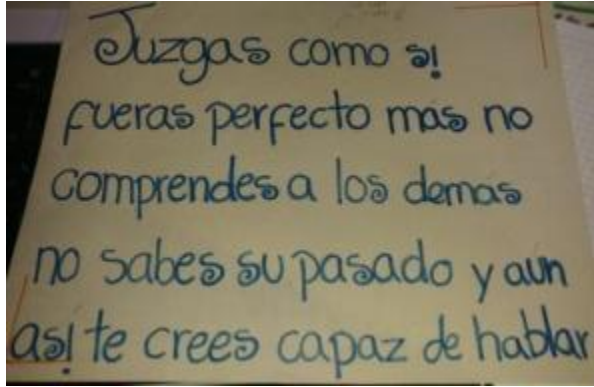 Juzgas como si
fueras perfecto mas no
comprendes a los demas
no sabes su pasado y aun
asi te crees capaz de hablar